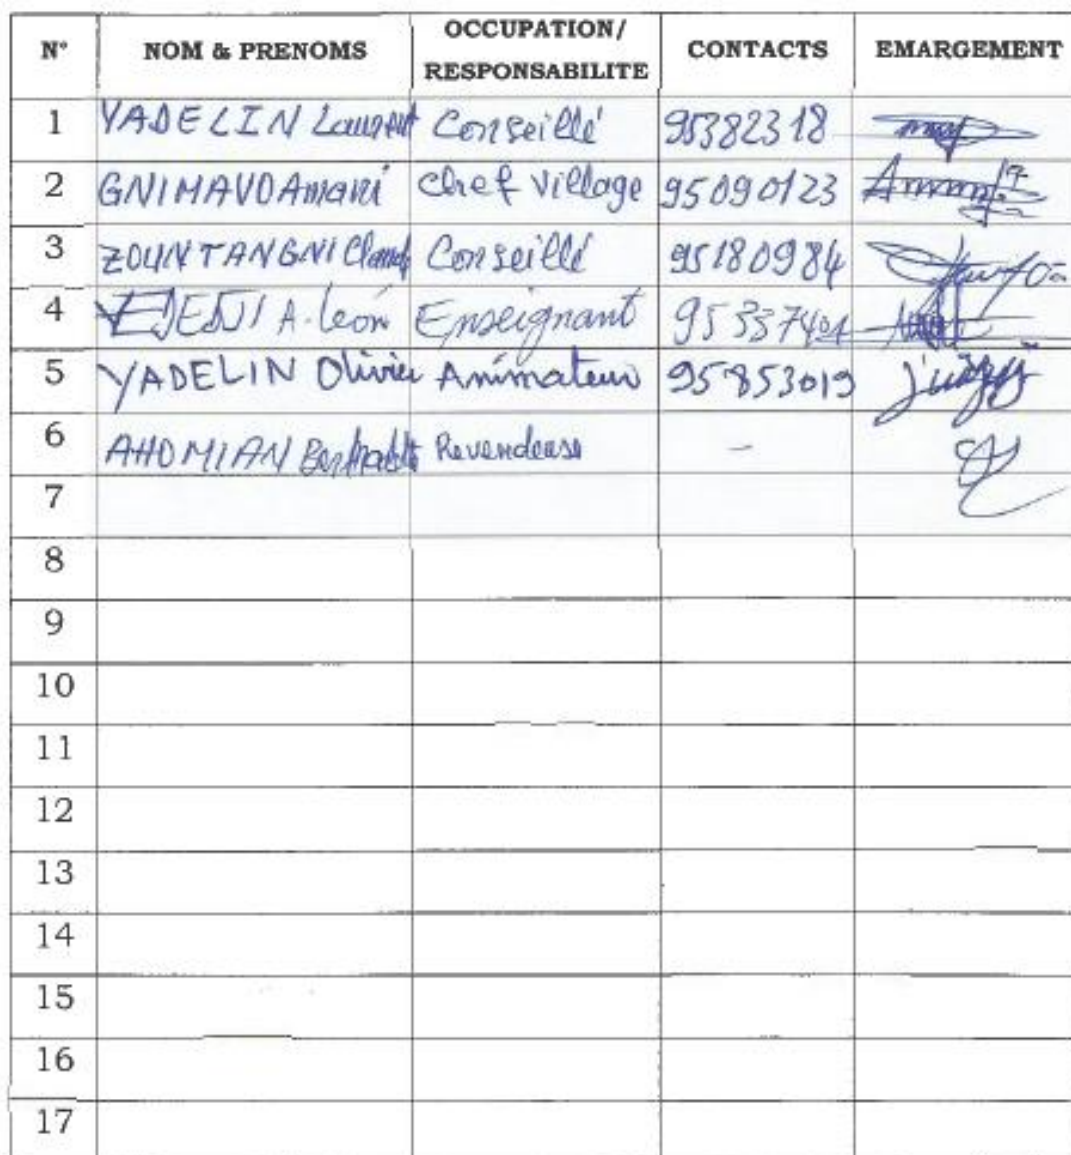 N° NOM & PRENOMS OCCUPATION/ RESPONSABILITE CONTACTS EMARGEMENT
1 YADELIN Laurent Conseillé 95382318
2 GNIMAVO Amani Chef village 95090123
3 ZOUNTANGNI Conseillé 95180984
4 A. León Enseignant 95337401
5 YADELIN Olivier Animateur 95853019
6 AHOMIAN Revendeuse -
7
8
9
10
11
12
13
14
15
16
17